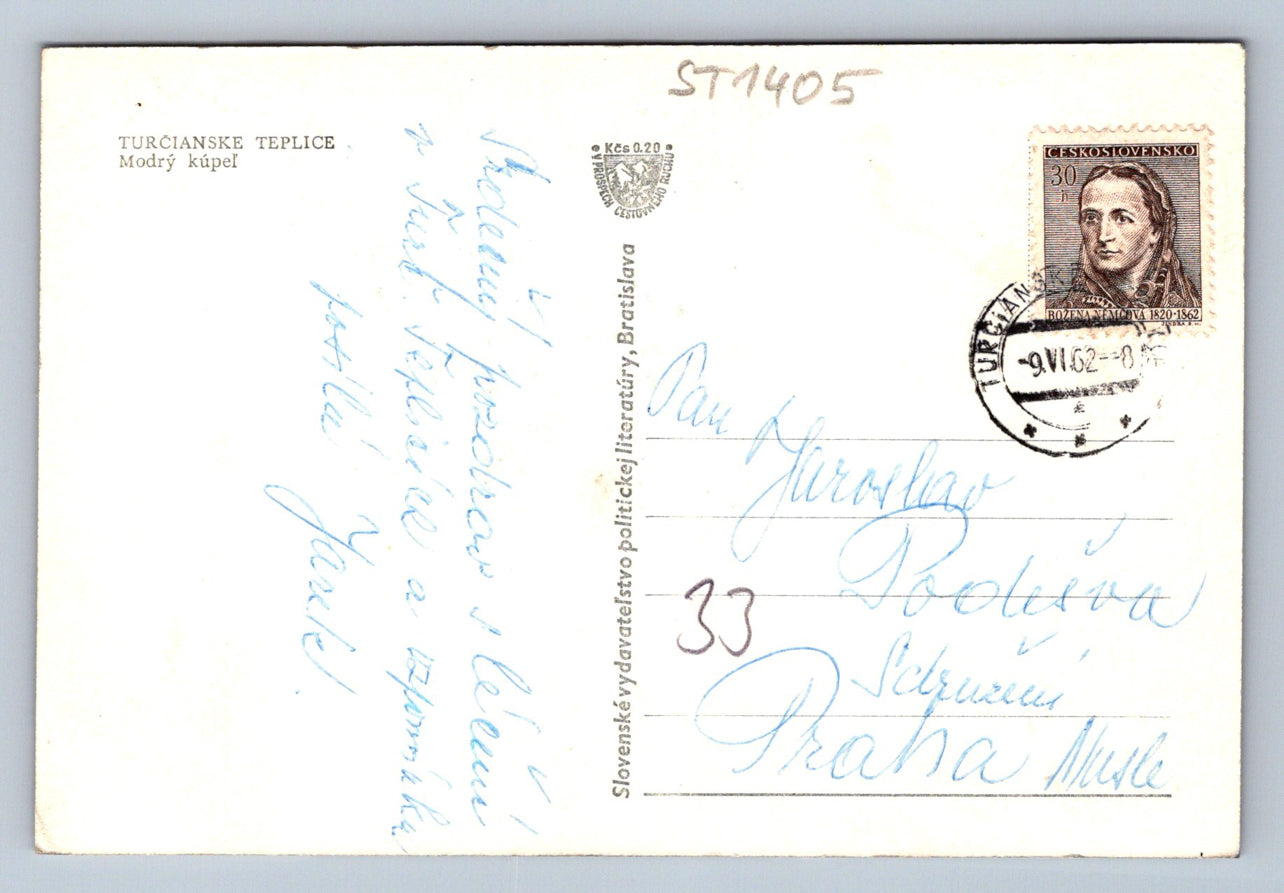 ST1405
TURČIANSKE TEPLICE
Modrý kúpeľ
Kčs 0.20
V PROSPECH CESTOVNÉHO RUCHU
ČESKOSLOVENSKO
30
h
BOŽENA NĚMCOVÁ 1820-1862
TURČIANSKE
-9.VI.62--8
Srdečný pozdrav s léčení
v Turč. Teplicích a vzpomínku
posílá
Slovenské vydavateľstvo politickej literatúry, Bratislava
Pan
Jaroslav
Poděšva
33
Sdružení
Praha Nusle